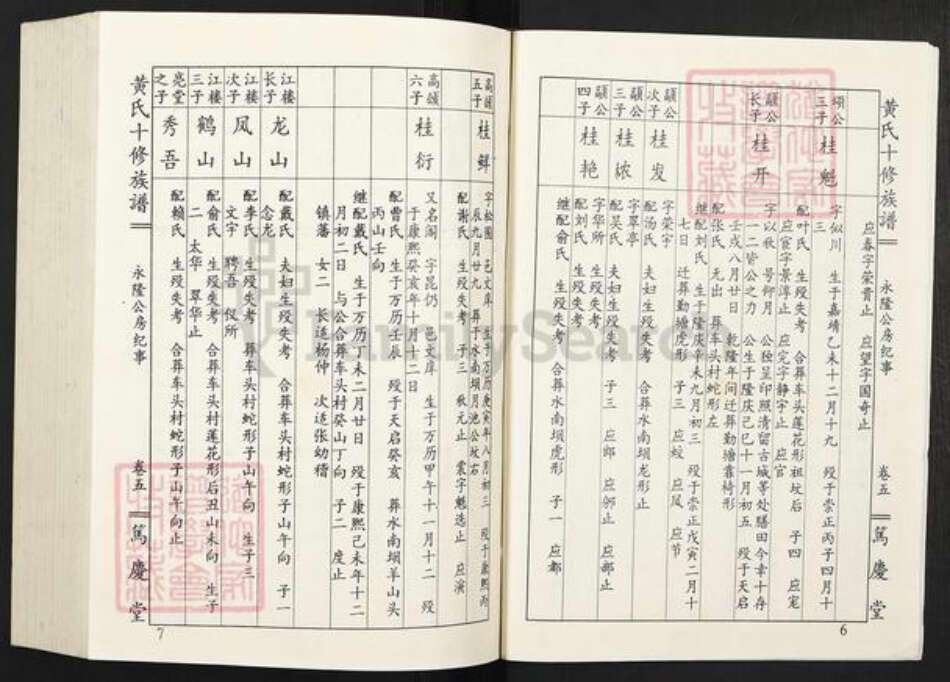 黄氏十修族谱
永隆公房纪事
卷五
篤慶堂
应春字荣贵止 应望字国奇止
颂公三子
桂魁
字似川 生于嘉靖乙未十二月十九 殁于崇正丙子四月十
三
配叶氏 生殁失考 合葬车头莲花形祖坟后 子四 应宠
应宦字景淳止 应定字静宇止 应官
颛公长子
桂开
字以秋 号仰月 公独呈印照清留古城等处膳田今幸十存
一二皆公之力 公生于隆庆己巳十一月初五 殁于天启
壬戌八月廿日 乾隆年间迁葬勤塘靠椅形
配张氏 无出 葬车头村蛇形左
继配刘氏 生于隆庆辛未九月初三 殁于崇正戊寅二月十
七日 迁葬勤塘虎形 子三 应蛟 应凤 应节
颛公次子
桂发
字荣宇
配汤氏 夫妇生殁失考 合葬水南坝龙形止
颛公三子
桂秾
字翠亭
配吴氏 夫妇生殁失考 子三 应郎 应邠止 应郁止
颛公四子
桂艳
字华所
配刘氏 生殁失考
继配俞氏 生殁失考 合葬水南坝虎形 子一 应都
6
高颔五子
桂鲜
字松圃 邑文庠 生于万历庚寅年八月初三 殁于康熙丙
辰九月廿九 葬于水南坝月池公坟右
配谢氏 生殁失考 子三 秋元止 震宇魁选止 应演
高颔六子
桂衍
又名阁 字昆仍 邑文庠 生于万历甲午十一月十二 殁
于康熙癸亥年十月十二日
配曹氏 生于万历壬辰 殁于天启癸亥 葬水南坝羊山头
丙山壬向
继配戴氏 生于万历丁未二月廿日 殁于康熙己未年十二
月初二日 与公合葬车头村癸山丁向 子二 度止
镇藩 女二 长适杨仲 次适张幼稽
江楼长子
龙山
配戴氏 夫妇生殁失考 合葬车头村蛇形子山午向 子一
念龙
江楼次子
凤山
配李氏 生殁失考 葬车头村蛇形子山午向 生子三
文宇 聘吾 仪所
江楼三子
鹤山
配俞氏 生殁失考 合葬车头村莲花形后丑山未向 生子
二 太华 翠华止
亮堂之子
秀吾
配赖氏 生殁失考 合葬车头村蛇形子山午向止
黄氏十修族谱
永隆公房纪事
卷五
篤慶堂
7
FamilySearch